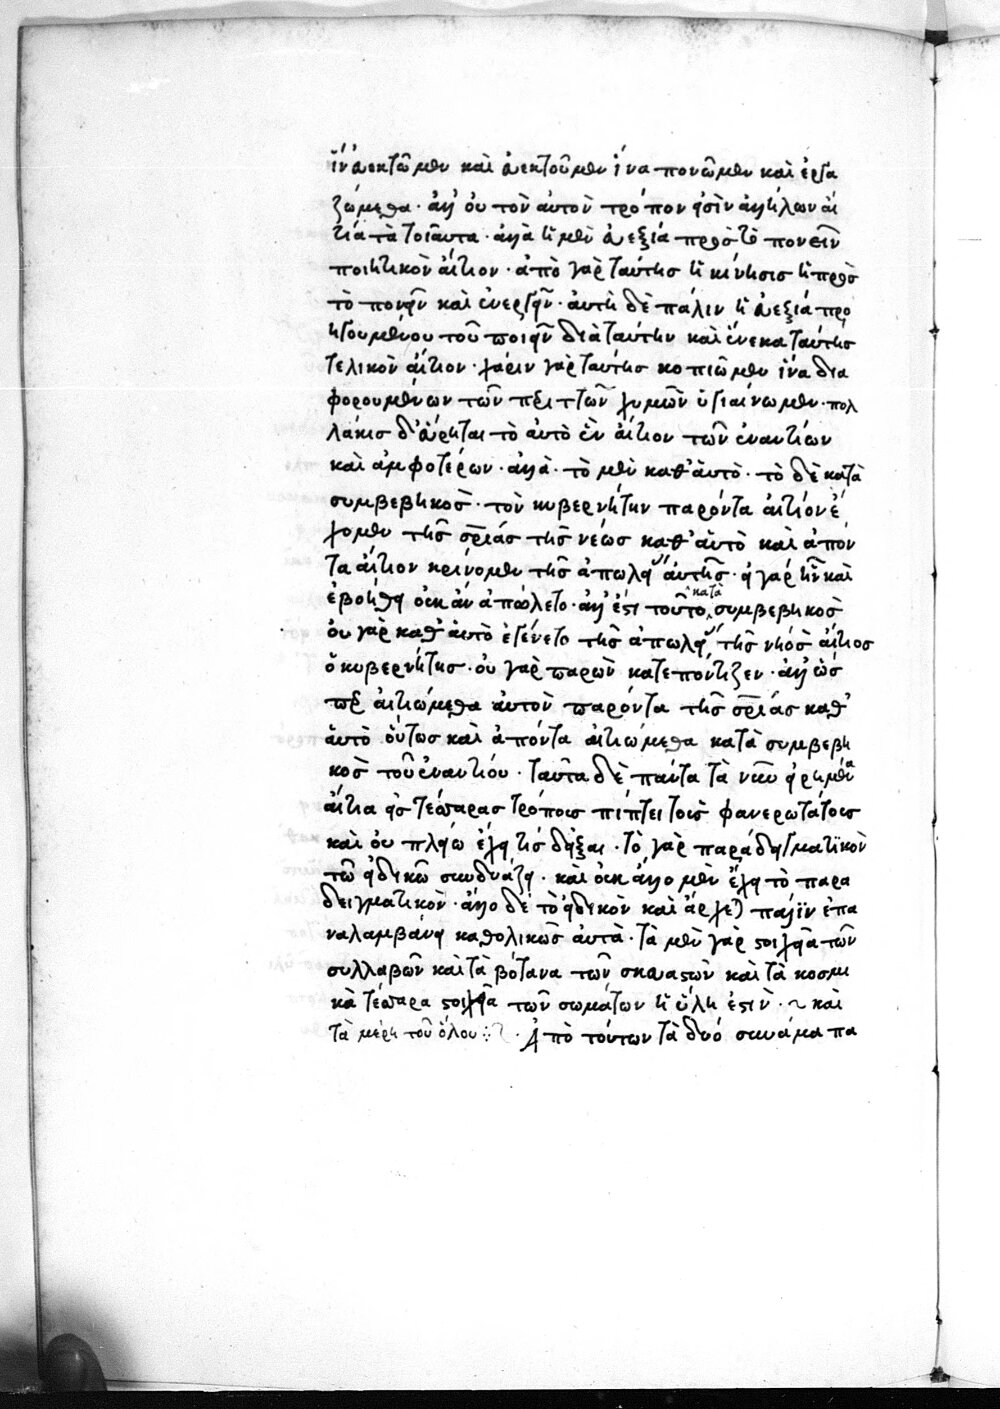 ἵν' εὐεκτῶμεν καὶ εὐεκτοῦμεν ἵνα πονῶμεν καὶ ἐργα
ζώμεθα· ἀλλ' οὐ τὸν αὐτὸν τρόπον εἰσὶν ἀλλήλων αἴ
τια τὰ τοιαῦτα· ἀλλὰ ἡ μὲν εὐεξία πρὸς τὸ πονεῖν
ποιητικὸν αἴτιον· ἀπὸ γὰρ ταύτης ἡ κίνησις ἡ πρὸς
τὸ πονεῖν καὶ ἐνεργεῖν· αὐτὴ δὲ πάλιν ἡ εὐεξία προ
ηγουμένου τοῦ ποιεῖν διὰ ταύτην καὶ ἕνεκα ταύτης
τελικὸν αἴτιον· χάριν γὰρ ταύτης κοπιῶμεν ἵνα δια
φορουμένων τῶν περιττῶν χυμῶν ὑγιαίνωμεν· πολ
λάκις δ' εὕρηται τὸ αὐτὸ ἓν αἴτιον τῶν ἐναντίων
καὶ ἀμφοτέρων· ἀλλὰ· τὸ μὲν καθ' αὑτὸ· τὸ δὲ κατὰ
συμβεβηκὸς· τὸν κυβερνήτην παρόντα αἴτιον ἔ
χομεν τῆς σωτηρίας τῆς νέως καθ' αὑτὸ καὶ ἀπόν
τα αἴτιον κρίνομεν τῆς ἀπωλείας αὐτῆς· εἰ γὰρ ἦν καὶ
ἐβοήθει οὐκ ἂν ἀπώλετο· ἀλλ' ἔστι τοῦτο κατὰ συμβεβηκὸς
οὐ γὰρ καθ' αὑτὸ ἐγένετο τῆς ἀπωλείας τῆς νηὸς αἴτιος
ὁ κυβερνήτης· οὐ γὰρ παρὼν κατεπόντιζεν· ἀλλ' ὥσ
περ αἰτιώμεθα αὐτὸν παρόντα τῆς σωτηρίας καθ'
αὑτὸ οὕτως καὶ ἀπόντα αἰτιώμεθα κατὰ συμβεβη
κὸς τοῦ ἐναντίου· ταῦτα δὲ πάντα τὰ νῦν εἰρημένα
αἴτια εἰς τέσσαρας τρόποις πίπτει τοῖς φανερωτάτοις
καὶ οὐ πλείω ἔχει τίς δεῖξαι· τὸ γὰρ παραδειγματικὸν
τῷ εἰδικῷ συνδυάζει· καὶ οὐκ ἄλλο μὲν ἔχει τὸ παρα
δειγματικὸν· ἄλλο δὲ τὸ εἰδικὸν καὶ ἄρχεται πάλιν ἐπα
ναλαμβάνει καθολικῶς αὐτά· τὰ μὲν γὰρ στοιχεῖα τῶν
συλλαβῶν καὶ τὰ βότανα τῶν σκευαστῶν καὶ τὰ κοσμι
κὰ τέσσαρα στοιχεῖα τῶν σωμάτων ἡ ὕλη ἐστὶν· καὶ
τὰ μέρη τοῦ ὅλου: Ἀπὸ τούτων τὰ δύο συνάμα πα